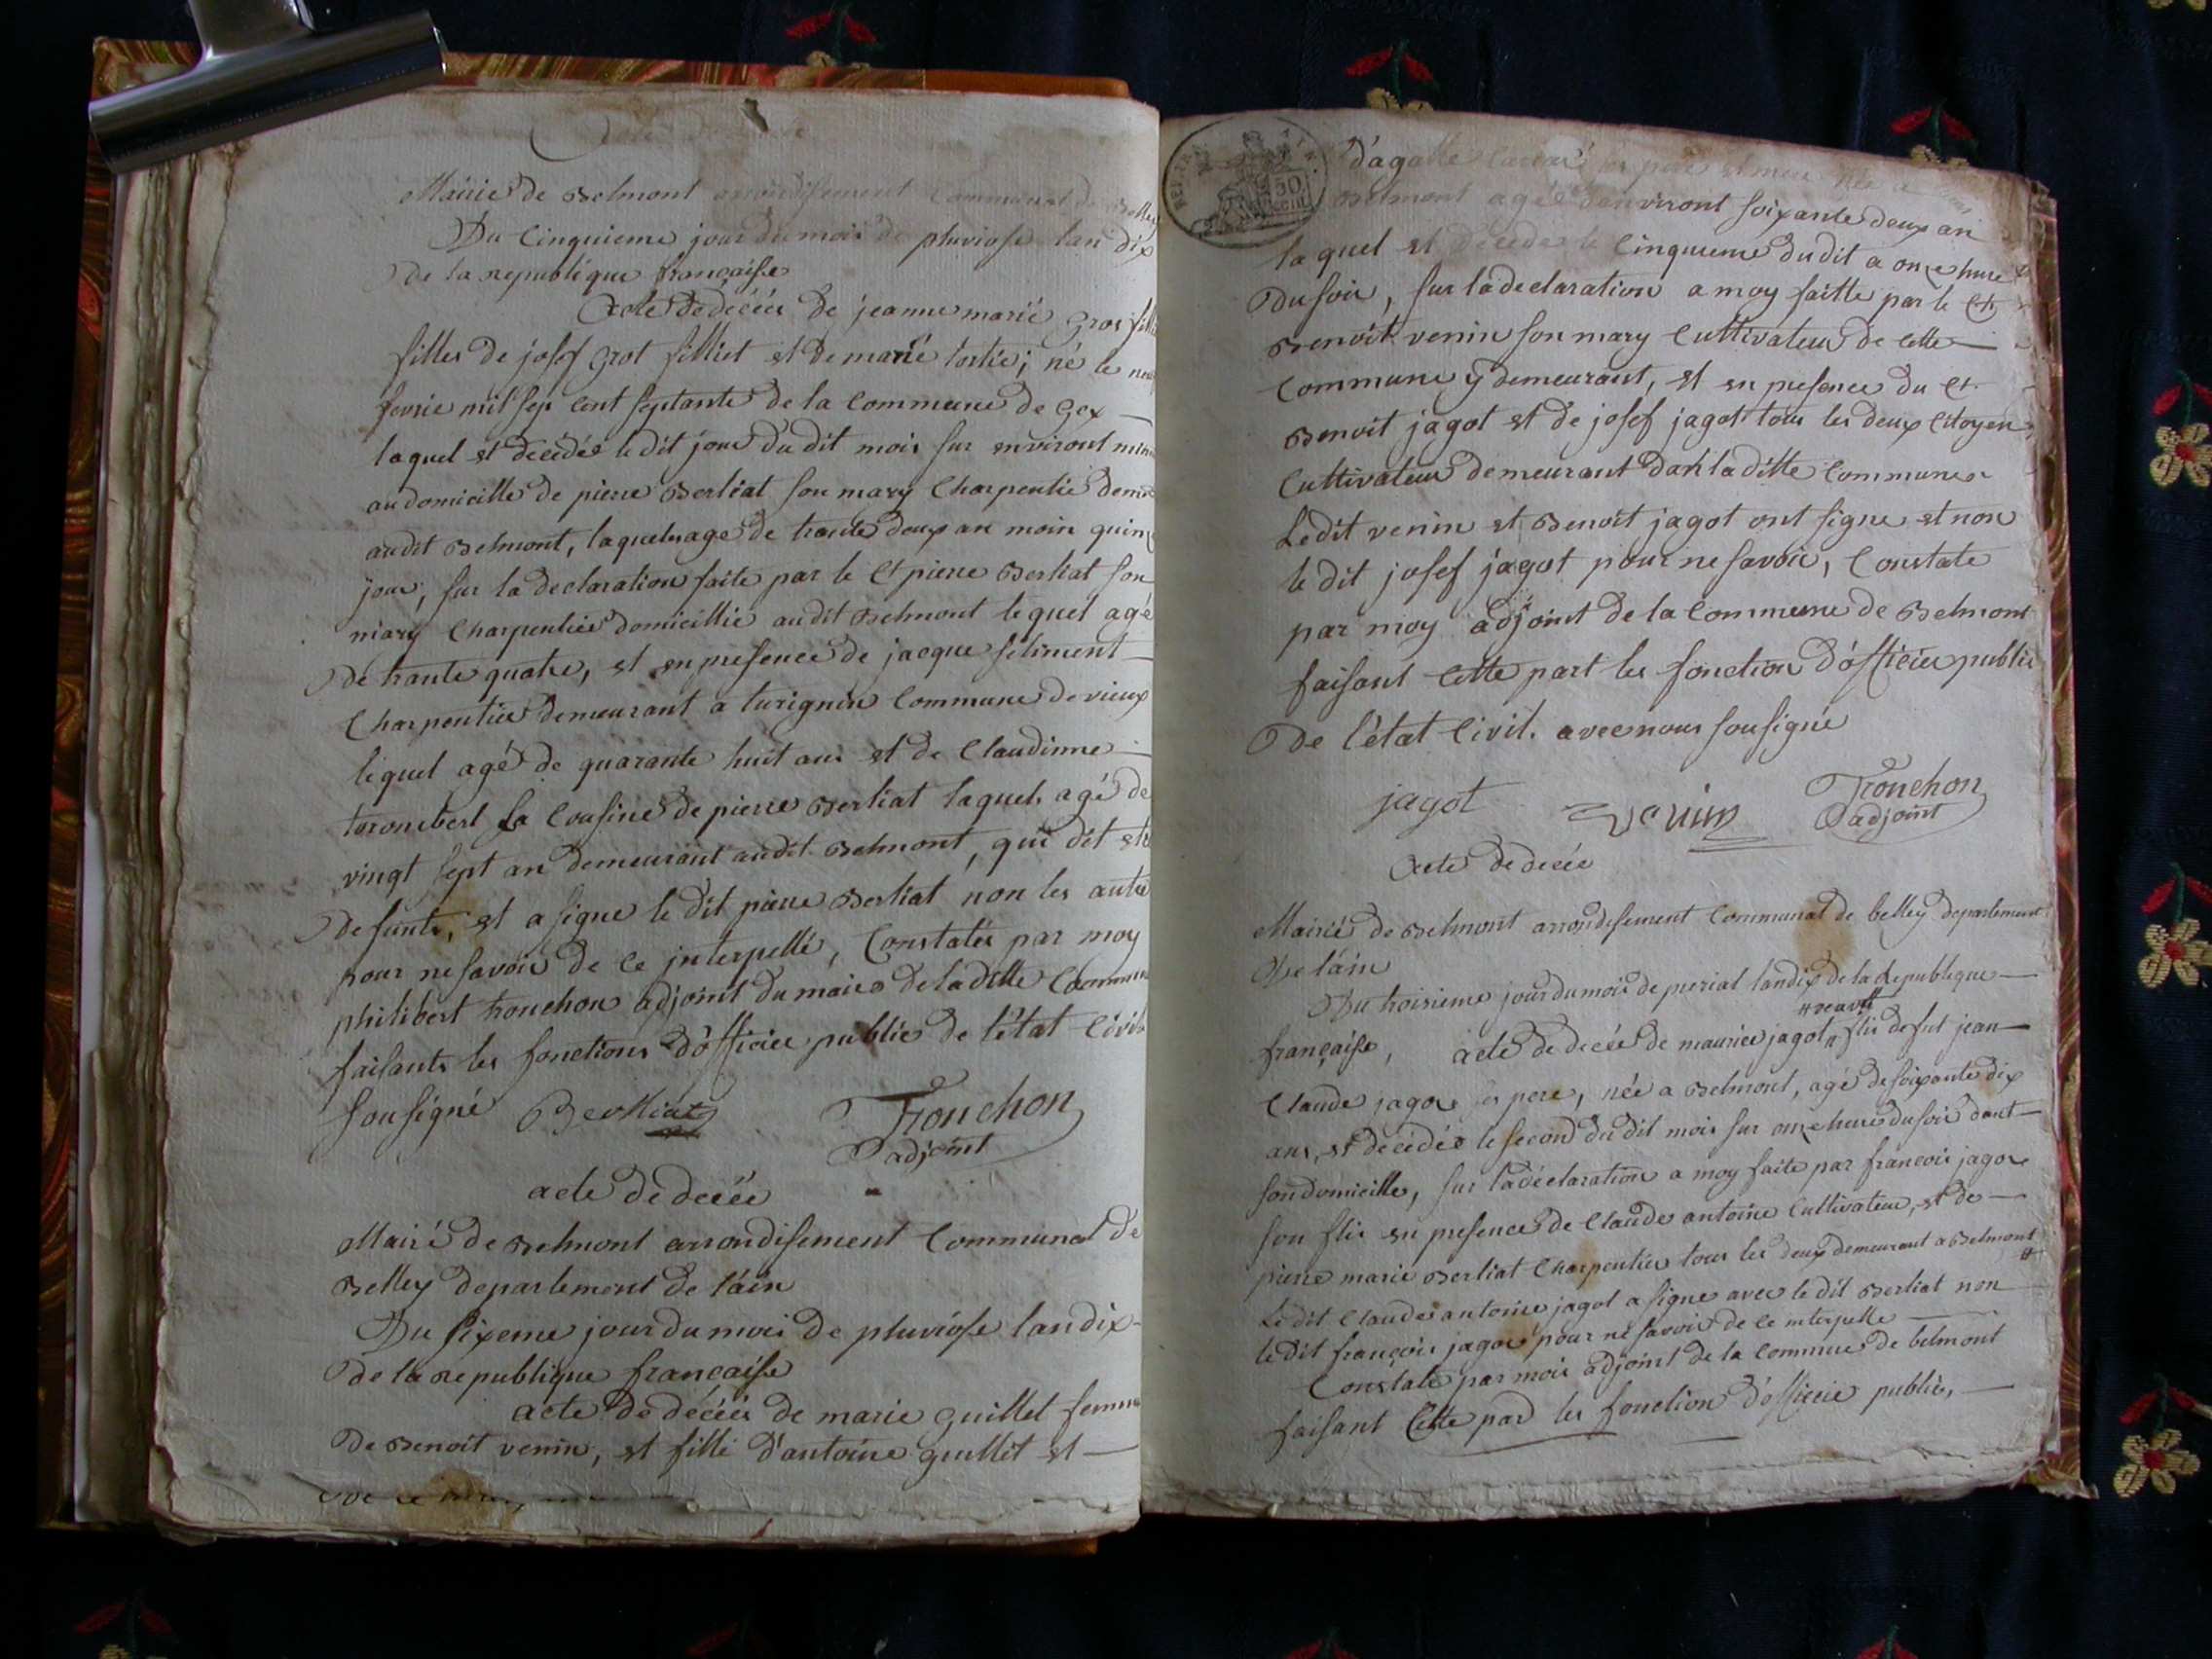 Mairie de Belmont arrondisement Communal de Belley
Du Cinquieme jour du mois de pluviose lan dix
de la republique françaisse
Acte de décéés de jeanne marie gros filliet
filles de josef grot filliet et de marie tortie; né le neuf
fevrie mil sep cent septante de la commune de Gex
laquel et décédée le dit jour du dit mois sur environt
au domicille de pierre Berliat son mary Charpentié
audit Belmont, laquel age de trante deux an moin quinz
jour; sur la declaration faite par le Ct pierre Berliat son
mary Charpentiée domicillié audit Belmont lequel agé
de trante quatre, et en presence de jacque
Charpentiée demeurant a turignin Commune de vieux
lequel agé de quarante huit ans et de Claudinne
trombert sa Cousine de pierre Berliat laquel agé de
vingt sept an demeurant audit Belmont, qui dit etre
de sante, et a signe le dit pierre Berliat non les autre
pour ne savoir de ce jnterpellé, Constatés par moy
philibert tronchon adjoint du maire de la ditte Commune
faisants les fonctions d'officiée publie de l'état Civil
sousigné Berlliat Tronchon
adjoint
acte de decée
Mairé de Belmont arrondisement Communal de
Belley departement de l'ain
Du sixeme jour du mois de pluviose lan dix
de la republique françaisse
acte de décéés de marie guillet femme
de Benoit venin, et fille d'antoine guillet et
BO. CENT.
d'agathe ses pere et mere née a
Belmont agée d'environt soixante deux an
laquel et décédé le Cinquieme du dit a onze hure
du soir, sur la declaration a moy faitte par le Ct.
Benoit venin son mary Cultivateur de cette
Commune y demeurant, et en presence du Ct.
Benoit jagot et de josef jagot tous les deux Citoyen
Cultivateur demeurant dans la ditte Commune
Ledit venin et Benoit jagot ont signe et non
le dit josef jagot pour ne savoir, Constate
par moy adjoint de la Commune de Belmont
faisant cette part les fonction d'officier public
De l'état Civil. avec nous sousigné
jagot venin Tronchon
adjoint
Acte de decée
Mairié de Belmont arrondisement Communal de belley departement
De l'ain
Du troisieme jour du mois de prerial lan dix de la Republique
françaisse, acte de decée de maurice jagot # fils de fut jean
Claude jagot ses pere, née a Belmont, agé de soixante dix
ans, et décédée le second du dit mois sur onze heure du soir dant
son domicille, sur la déclaration a moy faite par francois jagot
son fils en presence de Claude antoine Cultivateur, et de
pierre marie Berliat Charpentier tous les deux demeurant a Belmont #
Le dit Claude antoine jagot a signe avec le dit Berliat non
le dit françois jagot pour ne savoir de ce interpelle
Constate par mois adjoint de la commune de belmont
faisant Cette pard les fonction d'officie public,